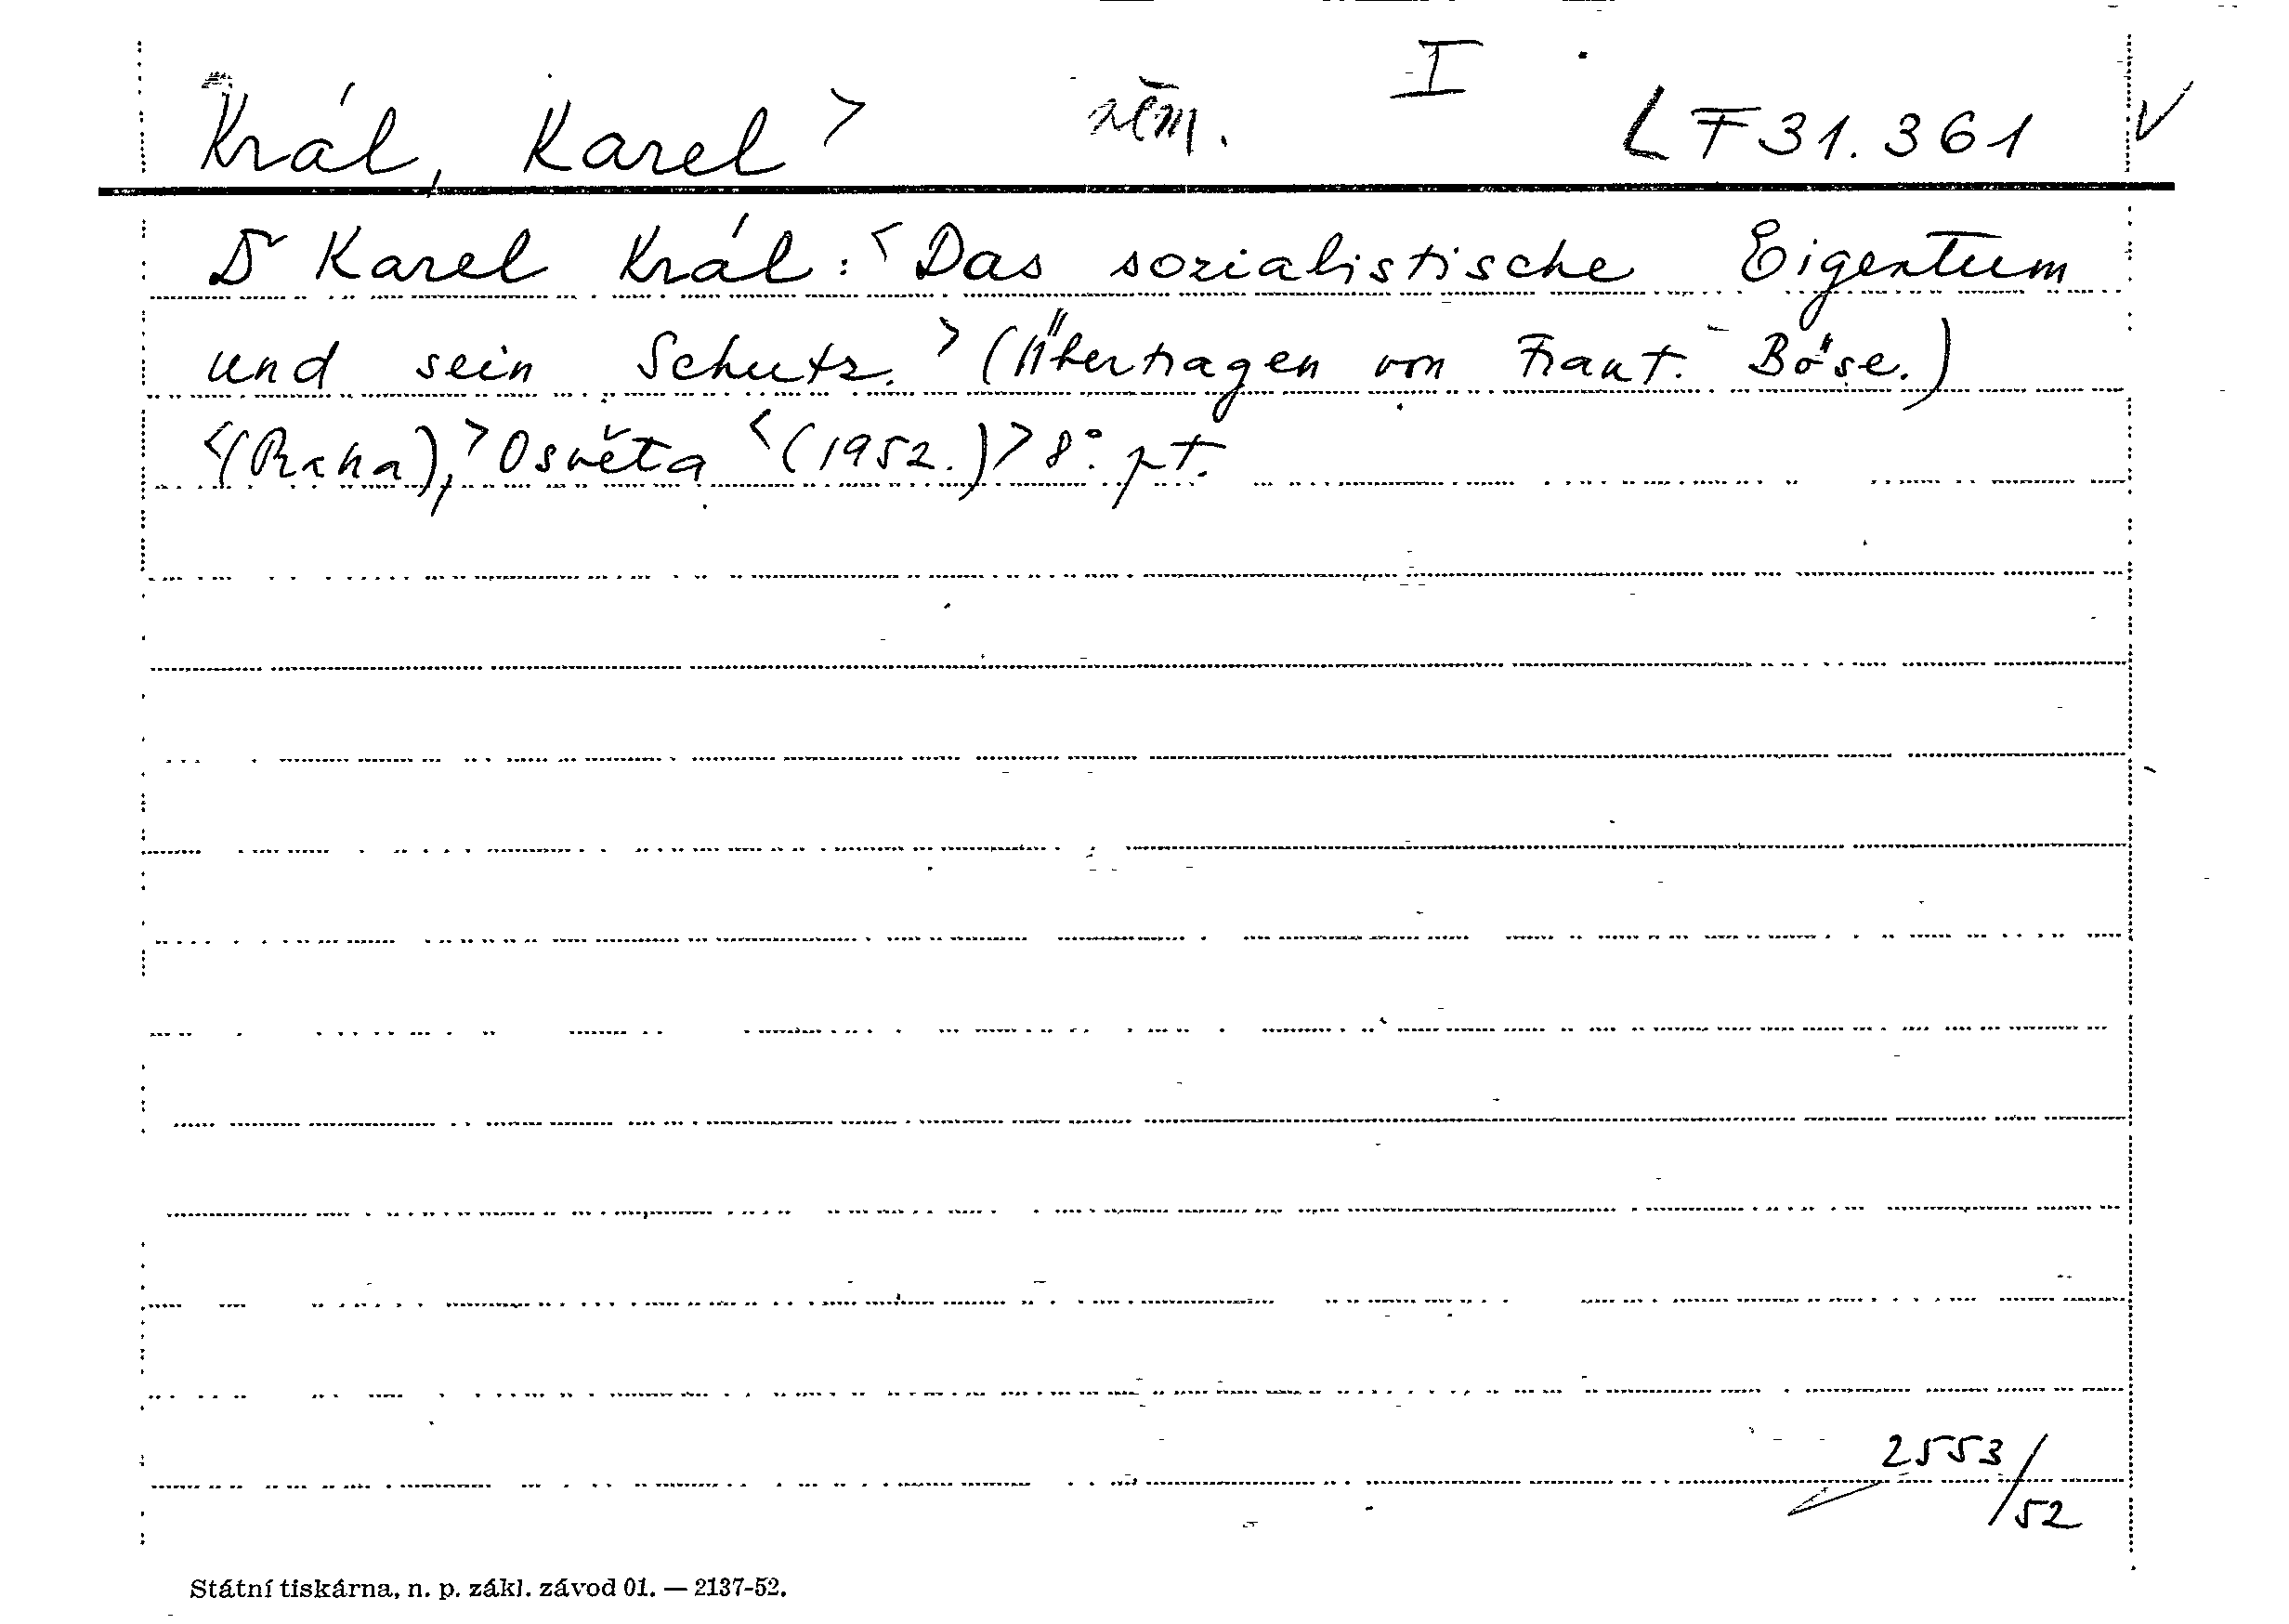 Král, Karel > něm. I LF31.361 V
Dr Karel Král: <Das sozialistische Eigentum
und sein Schutz.> (Übertragen von Frant. Böse.)
<(Praha),> Osvěta <(1952.)> 8°. pt.
2553/52
Státní tiskárna, n. p. zákl. závod 01. — 2137-52.